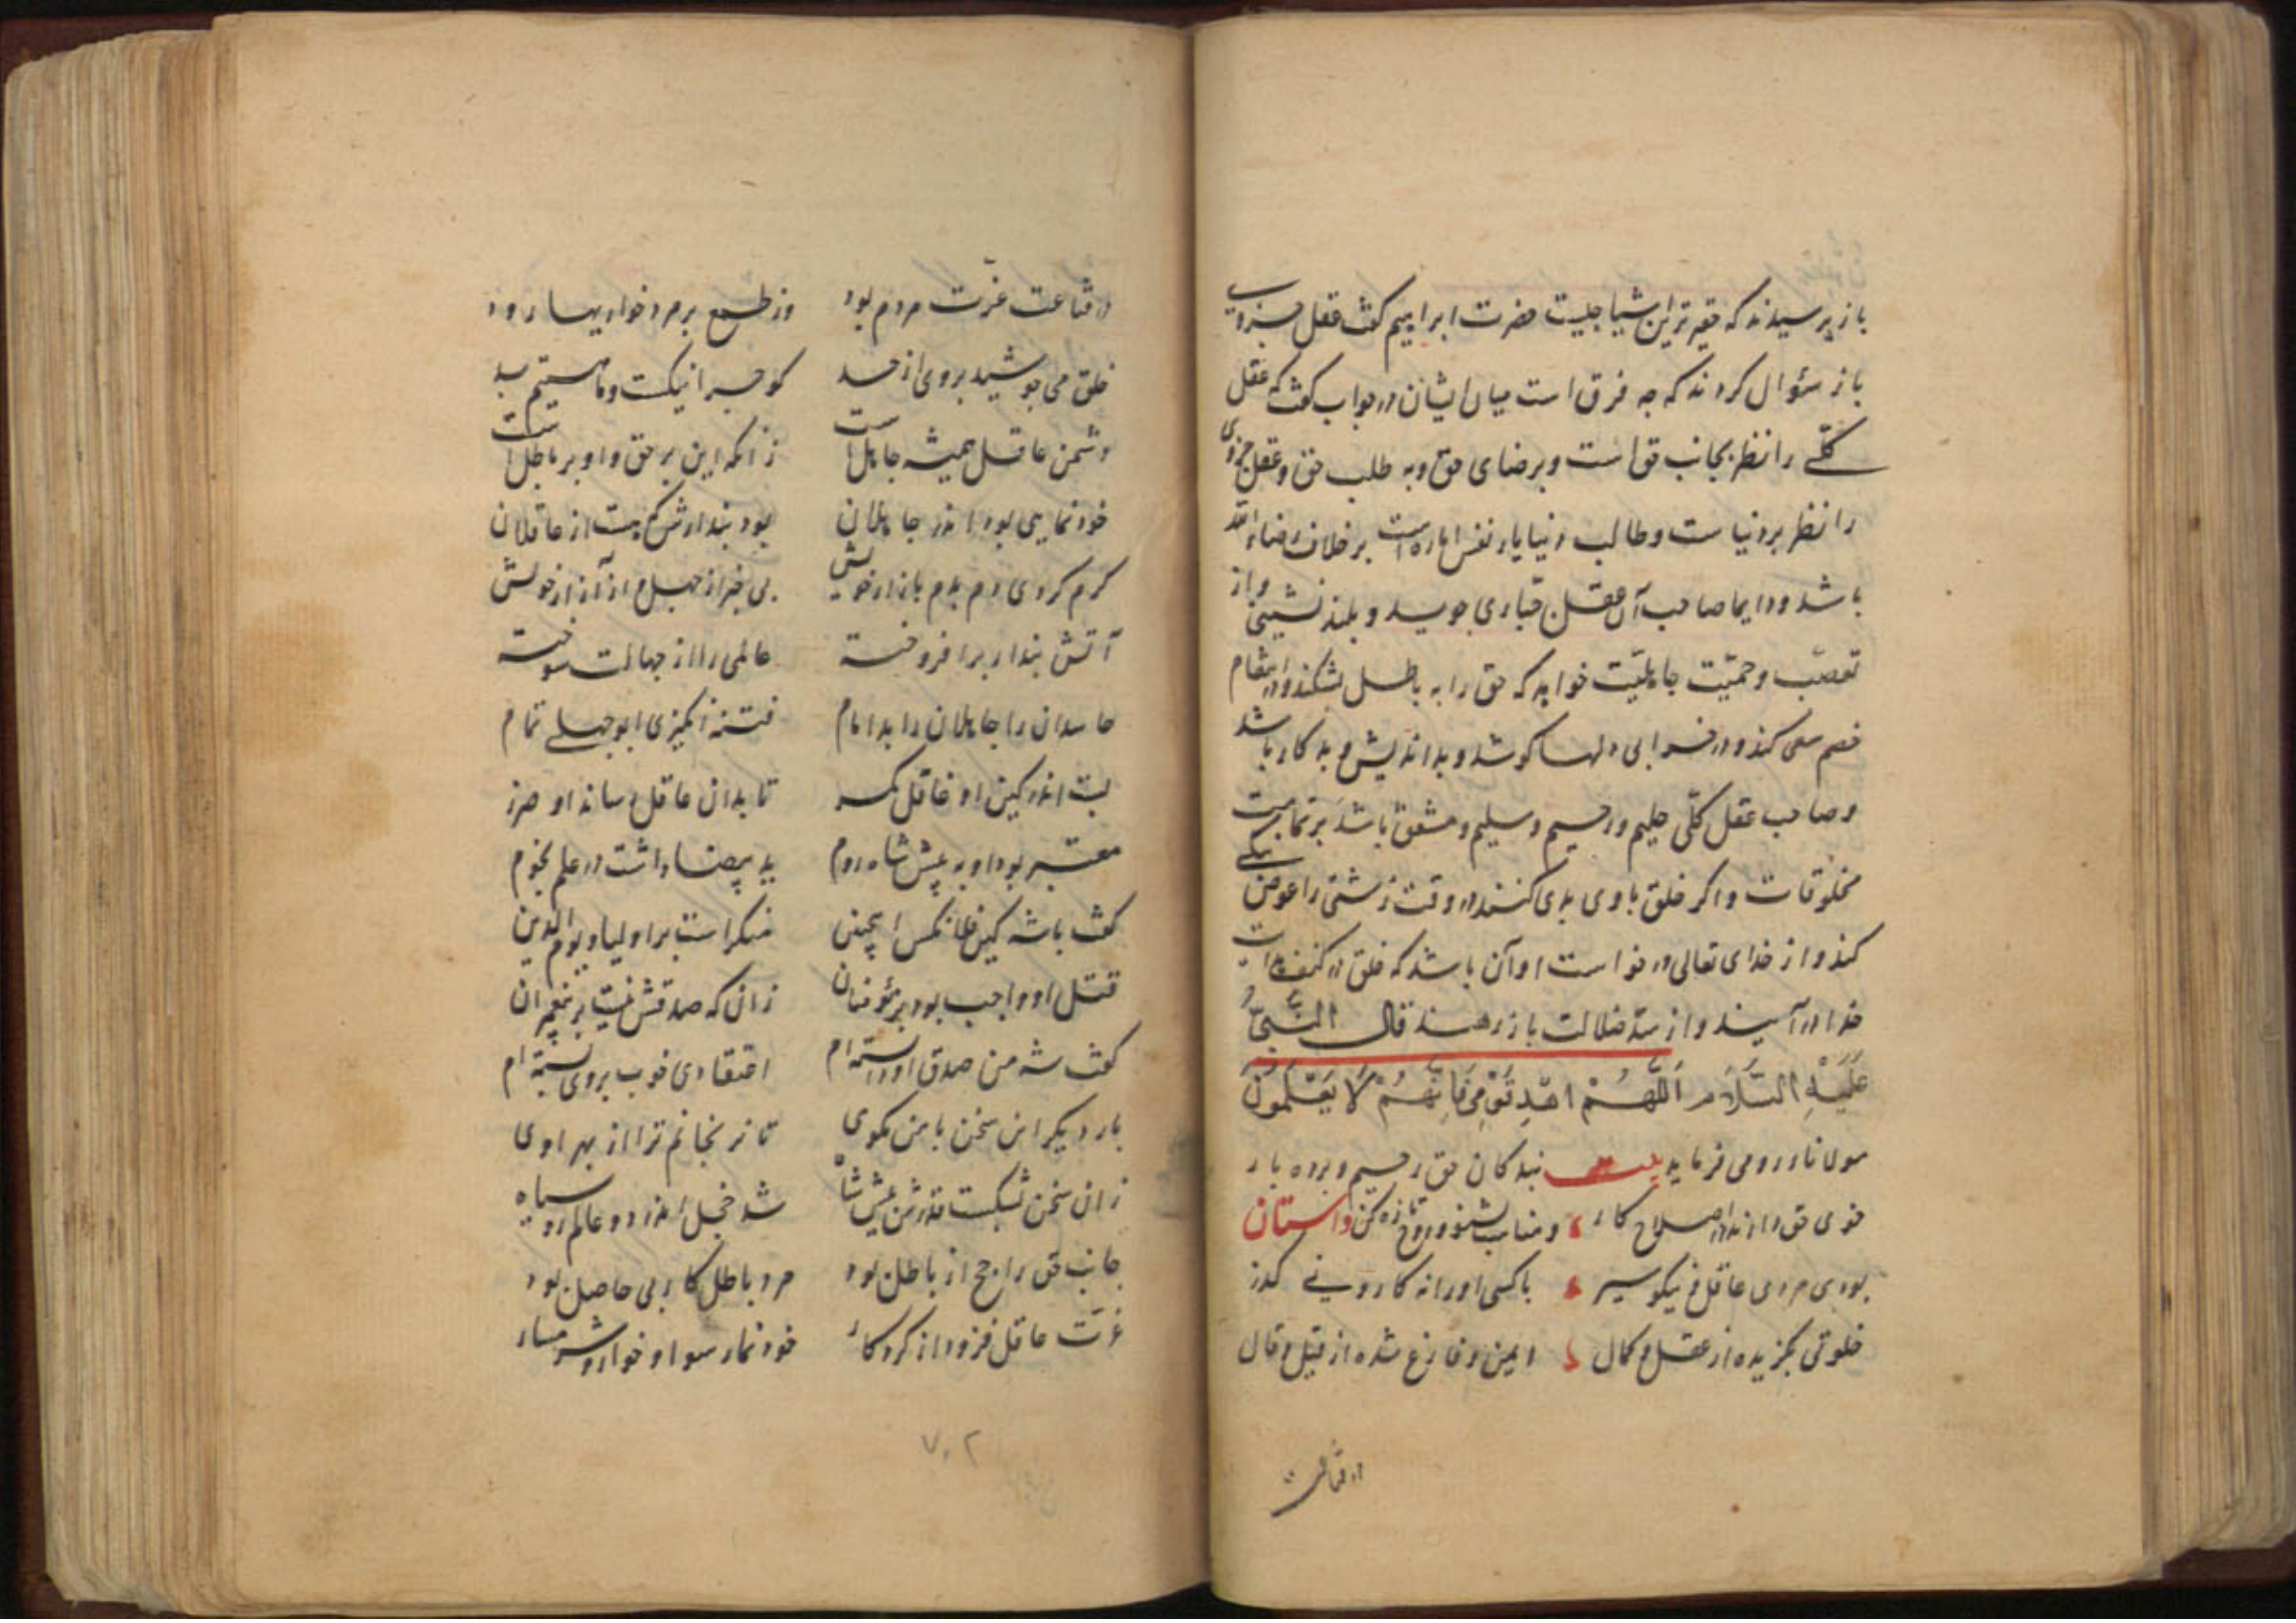 باز پرسیدند که حقیرترین اشیا چیست حضرت ابراهیم کفت عقل جزوی
باز سؤال کردند که چه فرق است میان ایشان در جواب کفت که عقل
کلّی را نظر بجانب حق است و برضای حق و به طلب حق و عقل جزوی
را نظر بر دنیاست و طالب دنیا یار نفس اماره است برخلاف رضاء الله
باشد و دایما صاحب آن عقل جباری جوید و بلند نشینی و از
تعصّب و حمیّت جاهلیّت خواهد که حق را به باطل بشکند و در انتقام
خصم سعی کند و در خرابی دلها کوشد و بداندیش و بدکار باشد
و صاحب عقل کلّی حلیم و رحیم و سلیم و مشفق باشد بر تمامیت
مخلوقات و اکر خلق با وی بدی کنند در وقت زشتی را عوض نیکی
کند و از خدای تعالی درخواست او آن باشد که خلق در کنف هدایت
خدا در آیند و از ضلالت باز رهند قال النَّبِیُّ
عَلَیْهِ السَّلَام اَللّهُمَّ اهْدِ قَوْمِی فَاِنَّهُمْ لَا یَعْلَمُونَ
مولانا رومی فرماید بیت بندکان حق رحیم و بردبار
خوی حق دارند در اصلاح کار و مناسب بشنو و روح تازه کن داستان
بود بی مردی عاقل نیکو سیر با کسی اورا نه کار و نی کذر
خلوتی بکزیده از عقل و کمال ایمن و فارغ شده از قیل و قال
در قناعت
در قناعت عزّت مردم بود وز طمع بر مرد خواریها رود
خلق می جوشید بروی از حسد کو چرا نیکست و ما هستیم بد
دشمن عاقل همیشه جاهل است زانکه این بر حق و او بر باطل است
خود نمایی بود اندر جاهلان بود پندارش که هست از عاقلان
کرم کردی دم بدم بازار خویش بی خبر از جهل و از آزار خویش
آتش پندار بر افروخته عالمی را از جهالت سوخته
حاسدان را جاهلان را بد امام فتنه انکیزی ابوجهلی تمام
بست اندر کین او عاقل کمر تا بدان عاقل رساند او ضرر
معتبر بود او به پیش شاه روم ید بیضا داشت در علم نجوم
کفت با شه کین فلانکس اینچنین منکر است بر اولیا و یوم الدین
قتل او واجب بود بر مؤمنان زان که صدقش نیست بر پیغمبران
کفت شه من صدق او دانسته ام اعتقادی خوب بروی بسته ام
بار دیکر این سخن با من مکوی تا نرنجانم ترا از بهر اوی
زان سخن بشکست قدرش پیش شاه شد خجل اندر دو عالم رو سیاه
جانب حق راجح از باطل بود مرد باطل کار بی حاصل بود
عزّت عاقل فزود از کردکار خود نما رسوا و خوار و شرمسار
۷۰۲